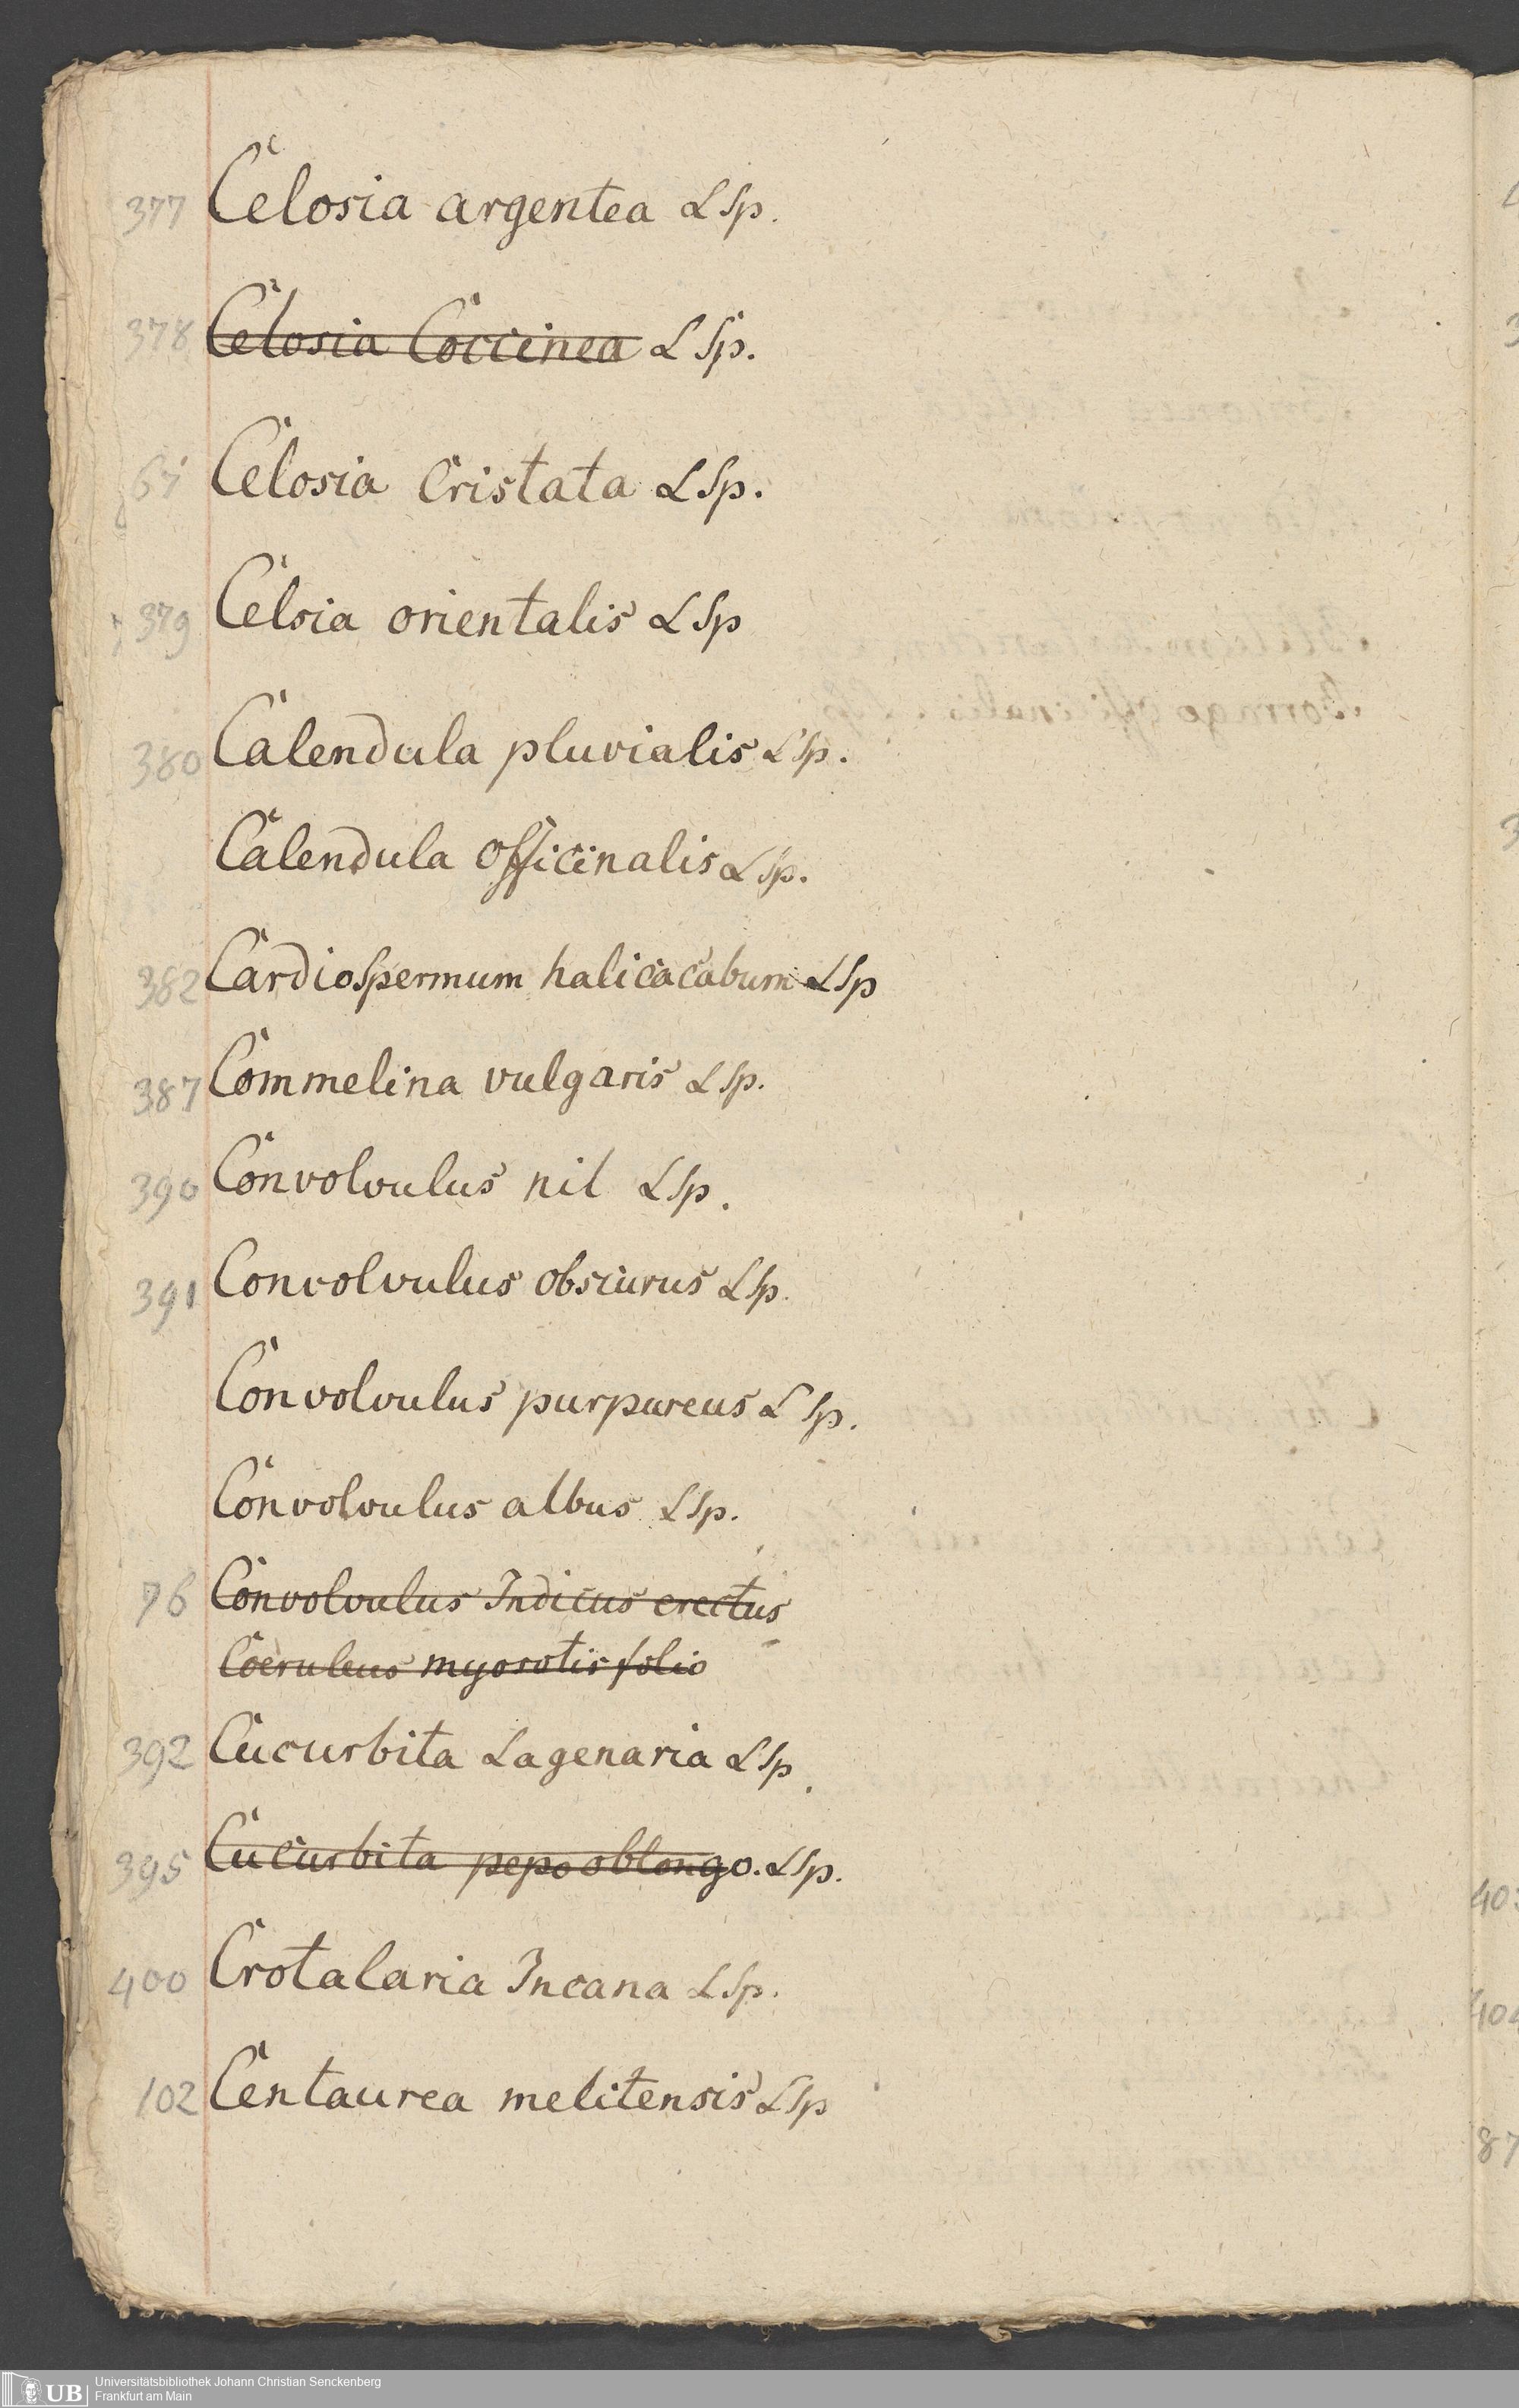 377 Celosia argentea L Sp.
378 Celosia Coccinea L Sp.
67 Celosia Cristata L Sp.
379 Celsia orientalis L Sp
380 Calendula pluvialis L Sp.
Calendula officinalis L Sp.
382 Cardiospermum halicacabum L Sp
387 Commelina vulgaris L Sp.
390 Convolvulus nil L Sp.
391 Convolvulus obscurus L Sp.
Convolvulus purpureus L Sp.
Convolvulus albus L Sp.
76 Convolvulus Indicus erectus
Coeruleus myosotis folio
392 Cucurbita Lagenaria L Sp.
395 Cucurbita pepo oblongo. L Sp.
400 Crotalaria Incana L Sp.
102 Centaurea melitensis L Sp
87
UB Universitätsbibliothek Johann Christian Senckenberg
Frankfurt am Main